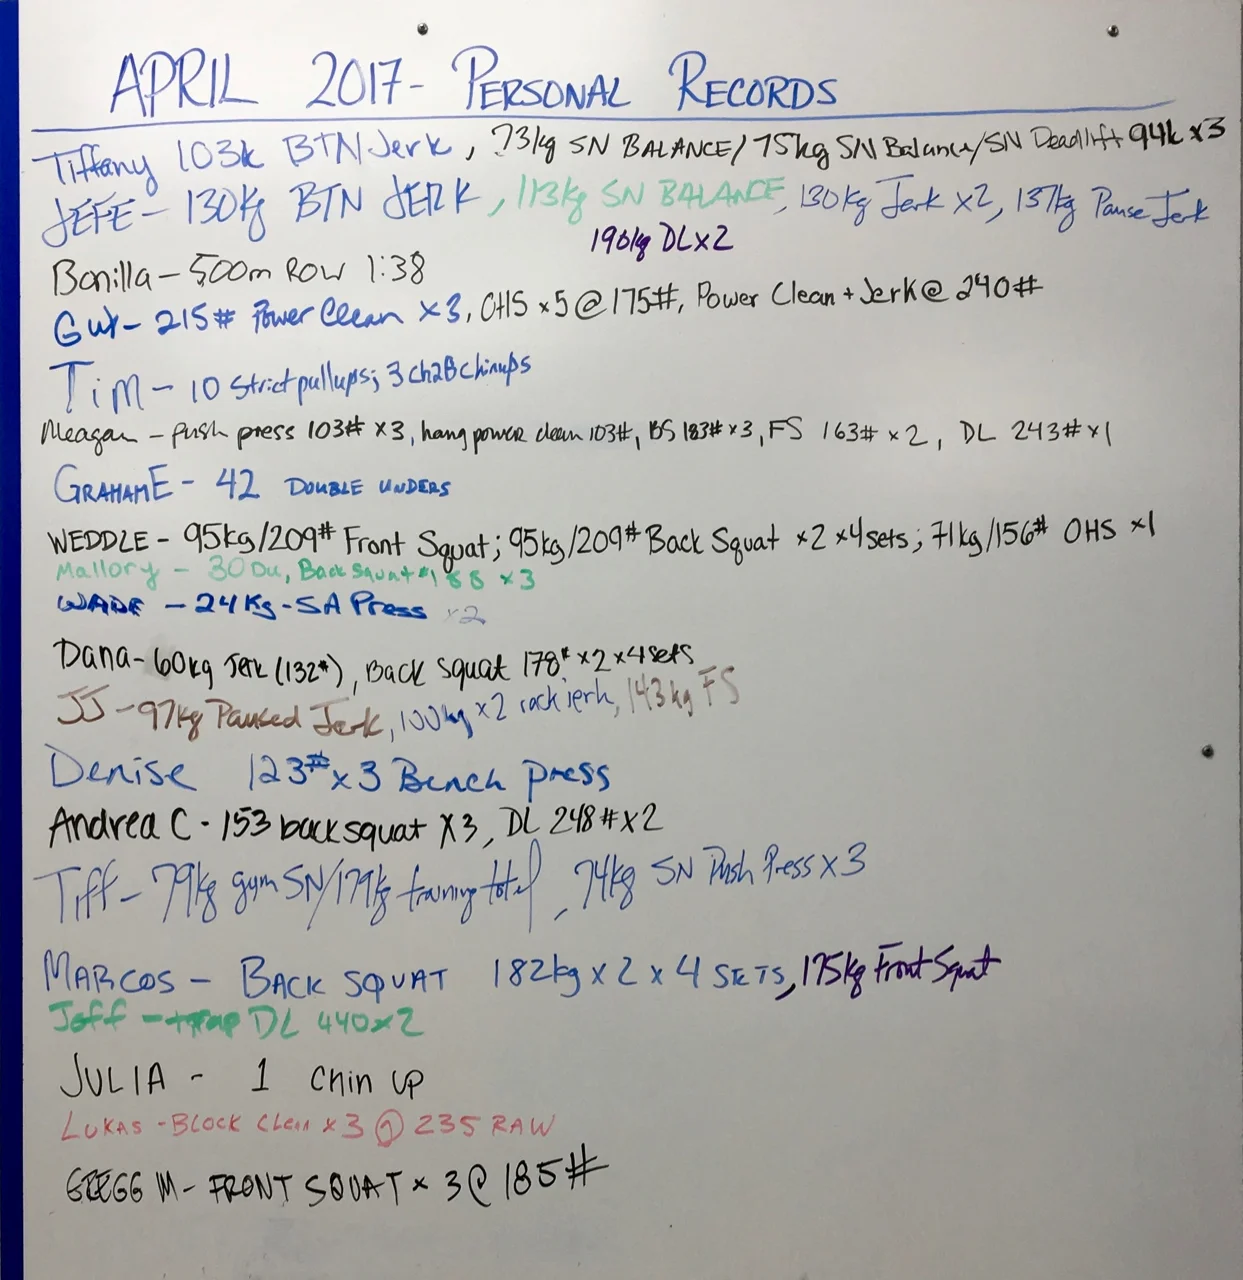 APRIL 2017- PERSONAL RECORDS
Tiffany 103k BTN Jerk, 73kg SN BALANCE/75kg SN Balance/SN Deadlift 94k x3
JEFE- 130kg BTN JERK, 113kg SN BALANCE, 130kg Jerk x2, 137kg Pause Jerk
190kg DL x2
Bonilla- 500m ROW 1:38
Gut- 215# Power Clean x3, OHS x5 @ 175#, Power Clean + Jerk @ 240#
TiM- 10 Strict pullups; 3 Ch2B chinups
Meagan - push press 103# x3, hang power clean 103#, BS 183# x3, FS 163# x2, DL 243# x1
GRAHAME- 42 DOUBLE UNDERS
WEDDLE- 95kg/209# Front Squat; 95kg/209# Back Squat x2 x4sets; 71kg/156# OHS x1
Mallory - 30 Du, Back Squat #188 x3
WADE - 24Kg-SA Press x2
Dana- 60kg Jerk (132#), Back Squat 178# x2 x4sets
JJ-97kg Paused Jerk, 100kg x2 rack jerk, 143kg FS
Denise 123# x3 Bench press
Andrea C- 153 back squat X3, DL 248# X2
Tiff- 79kg gym SN/179kg training total, 74kg SN Push Press x3
MARCOS- BACK SQUAT 182kg x 2 x 4 SETS, 175kg Front Squat
Jeff - trap DL 440x2
JULIA - 1 Chin up
LUKAS -BLOCK Clean x3 @ 235 RAW
GREGG M- FRONT SQUAT x 3 @ 185#